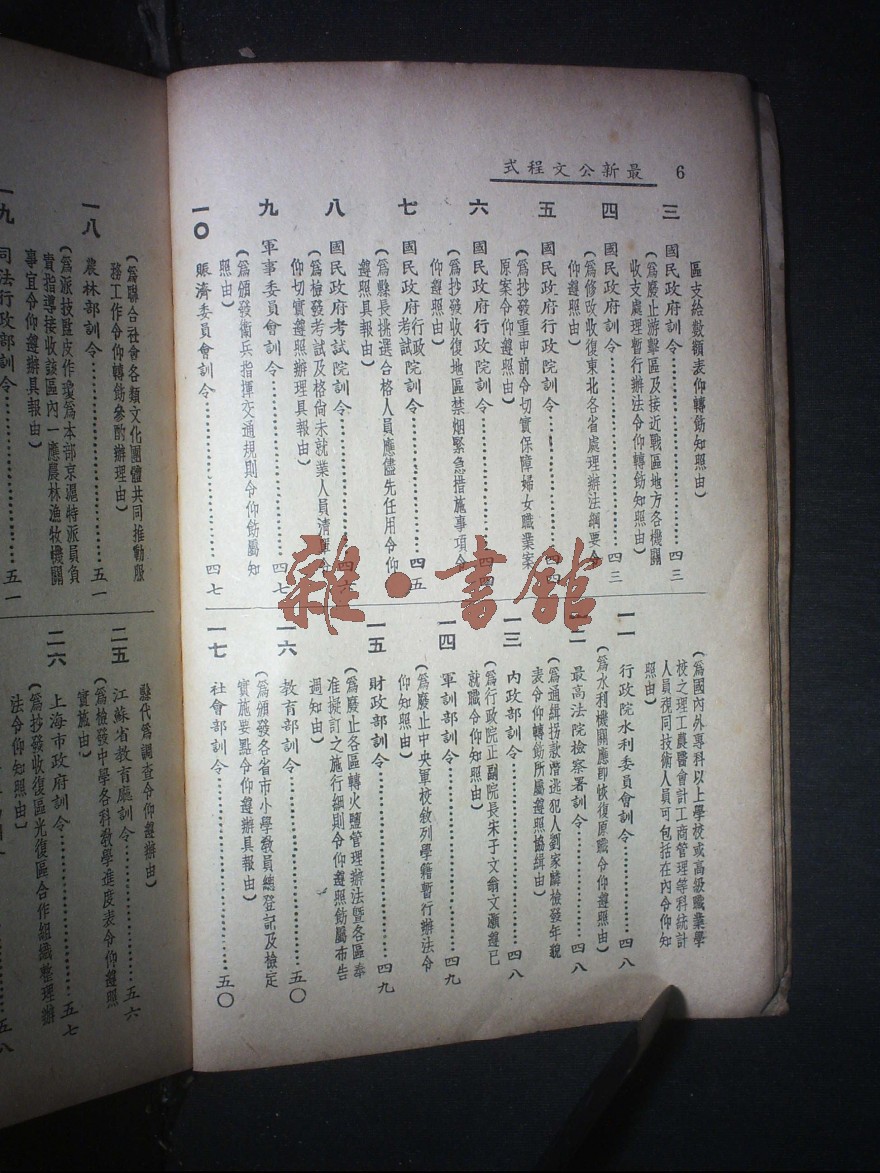 6
最新公文程式
區支給數額表仰轉飭知照由)
三 國民政府訓令……四三
(爲廢止游擊區及接近戰區地方各機關
收支處理暫行辦法令仰轉飭知照由)
四 國民政府訓令……四三
(爲修改收復東北各省處理辦法綱要令
仰遵照由)
五 國民政府行政院訓令……四四
(爲抄發重申前令切實保障婦女職業案
原案令仰遵照由)
六 國民政府行政院訓令……四四
(爲抄發收復地區禁烟緊急措施事項令
仰遵照由)
七 國民政府行政院考試院訓令……四五
(爲縣長挑選合格人員應儘先任用令仰
遵照具報由)
八 國民政府考試院訓令……四六
(爲檢發考試及格尙未就業人員清單令
仰切實遵照辦理具報由)
九 軍事委員會訓令……四七
(爲頒發衛兵指揮交通規則令仰飭屬知
照由)
一〇 賑濟委員會訓令……四七
(爲國內外專科以上學校或高級職業學
校之理工農醫會計工商管理等科統計
人員視同技術人員可包括在內令仰知
照由)
一一 行政院水利委員會訓令……四八
(爲水利機關應即恢復原職令仰遵照由)
一二 最高法院檢察署訓令……四八
(爲通緝拐款潛逃犯人劉家麟檢發年貌
表令仰轉飭所屬遵照協緝由)
一三 內政部訓令……四八
(爲行政院正副院長宋子文翁文灝遵已
就職令仰知照由)
一四 軍訓部訓令……四九
(爲廢止中央軍校敘列學籍暫行辦法令
仰知照由)
一五 財政部訓令……四九
(爲廢止各區轉火鹽管理辦法暨各區奉
准擬訂之施行細則令仰遵照飭屬布告
週知由)
一六 教育部訓令……五〇
(爲頒發各省市小學教員總登記及檢定
實施要點令仰遵辦具報由)
一七 社會部訓令……五〇
(爲聯合社會各類文化團體共同推動服
務工作令仰轉飭參酌辦理由)
一八 農林部訓令……五一
(爲派技監皮作瓊爲本部京滬特派員負
責指導接收該區內一應農林漁牧機關
事宜令仰遵辦具報由)
一九 司法行政部訓令……五一
縣代爲調查令仰遵辦由)
二五 江蘇省教育廳訓令……五六
(爲檢發中學各科教學進度表令仰遵照
實施由)
二六 上海市政府訓令……五七
(爲抄發收復區光復區合作組織整理辦
法令仰知照由)
五八
雜·書館